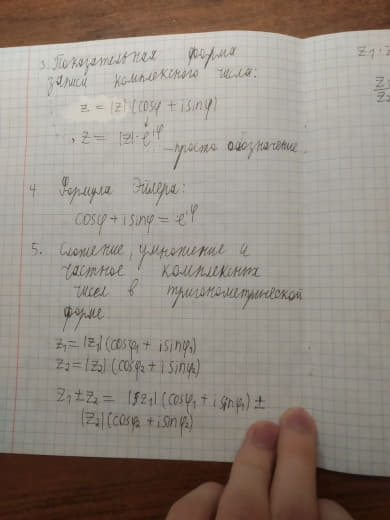 3. Показательная форма
записи комплексного числа:
z = |z| (cosφ + i sinφ)
z = |z|·e^iφ – просто обозначение.
4 Формула Эйлера:
cosφ + i sinφ = e^iφ
5. Сложение, умножение и
частное комплексных
чисел в тригонометрической
форме
z₁ = |z₁| (cosφ₁ + i sinφ₁)
z₂ = |z₂| (cosφ₂ + i sinφ₂)
z₁ ± z₂ = |z₁| (cosφ₁ + i sinφ₁) ±
|z₂| (cosφ₂ + i sinφ₂)